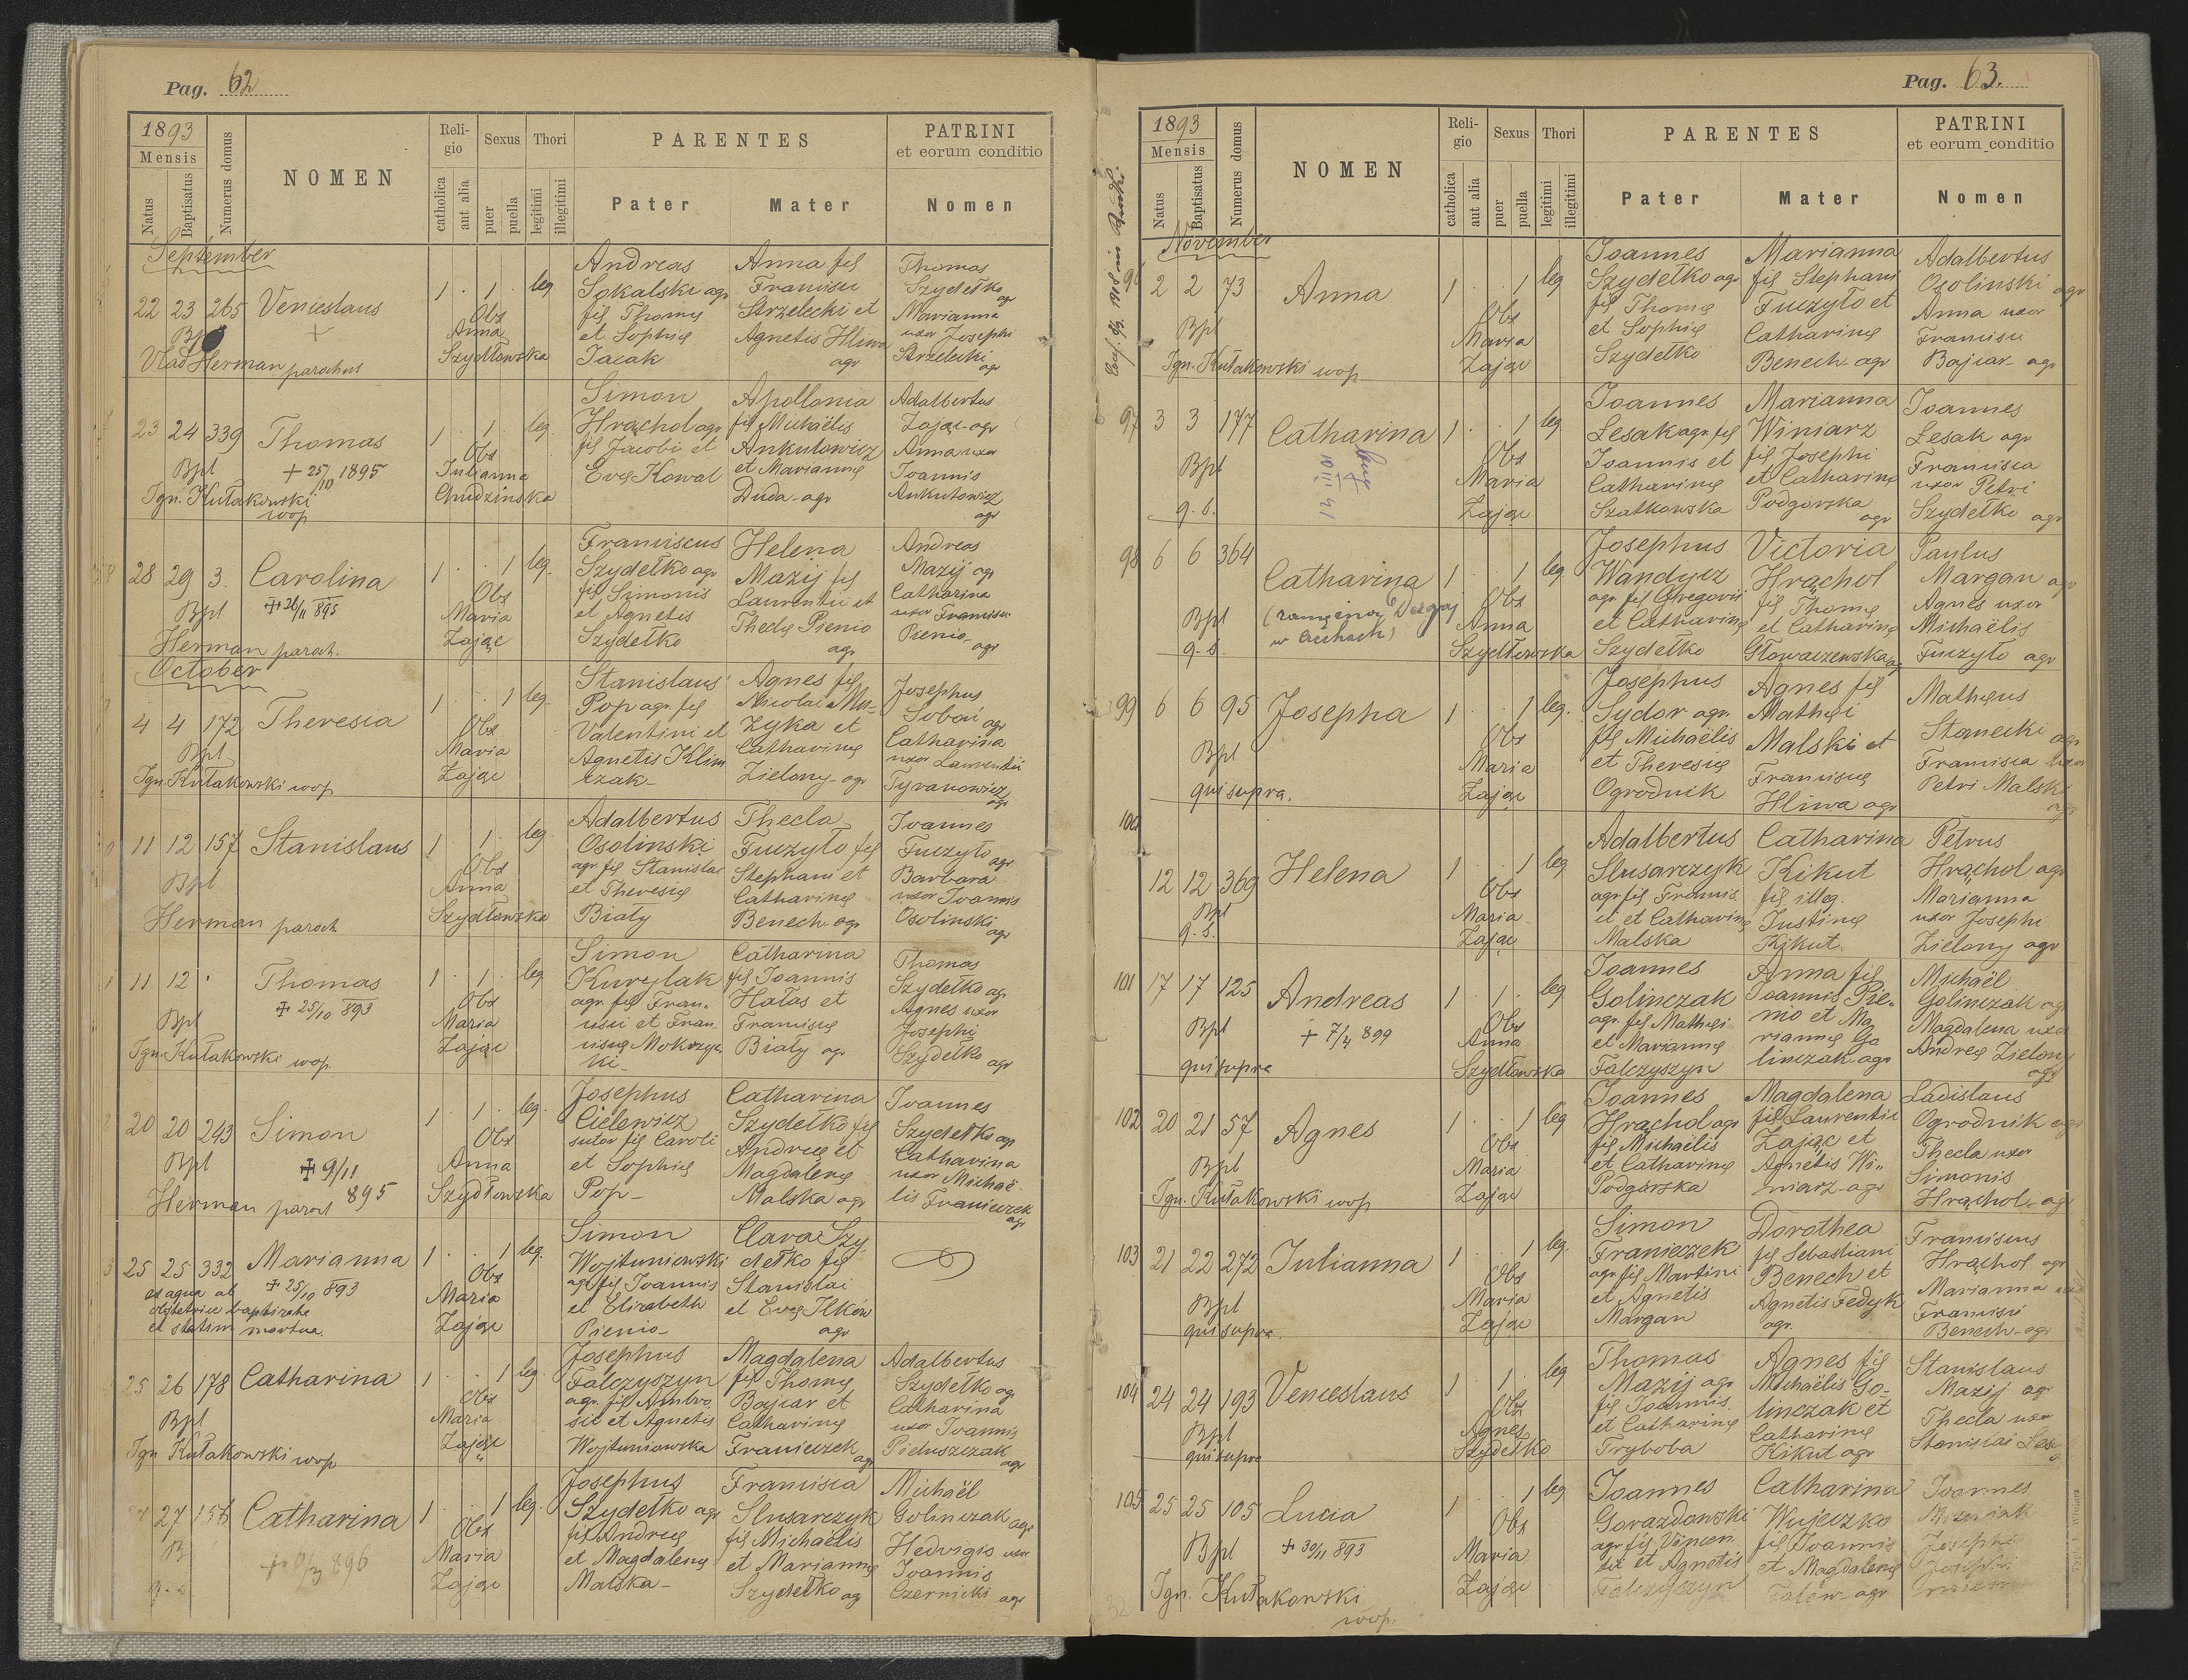 Pag. 62
1893
Mensis
Natus
Baptisatus
Numerus domus
NOMEN
Religio
catholica
aut alia
Sexus
puer
puella
Thori
legitimi
illegitimi
PARENTES
Pater
Mater
PATRINI
et eorum conditio
Nomen
September
22 23 265 Venceslaus 1 . 1 . leg
Bpl
Vlad Herman parochus
Obs
Anna
Szydłowska
Andreas
Sokalski agr
fil Thomę
et Sophię
Jacak
Anna fil
Francisci
Strzelecki et
Agnetis Hliwa
agr
Thomas
Szydełko
agr
Marianna
uxor Josephi
Strzelecki
agr
23 24 339 Thomas 1 . 1 . leg
Bpl + 25/10 1895
Ign. Kułakowski
wop
Obs
Julianna
Chudzińska
Simon
Hrąchol agr
fil Jacobi et
Evę Kowal
Apollonia
fil Michaëlis
Ankutowicz
et Mariannę
Duda - agr
Adalbertus
Zając agr
Anna uxor
Joannis
Ankutowicz
agr
28 29 3. Carolina 1 . . 1 leg.
Bpl + 26/11 895
Herman paroch.
Obs
Maria
Zając
Franciscus
Szydełko agr
fil Simonis
et Agnetis
Szydełko
Helena
Mazij fil
Laurentii et
Theclę Pienio
agr
Andreas
Mazij agr
Catharina
uxor Francisci
Pienio
agr
October
4 4 172 Theresia 1 . . 1 leg.
Bpl
Ign. Kułakowski wop
Obs
Maria
Zając
Stanislaus
Pop agr. fil
Valentini et
Agnetis Klim
czak
Agnes fil
Nicolai Mu-
zyka et
Catharinę
Zielony - agr
Josephus
Soboń agr
Catharina
uxor Laurentii
Tyranowicz
agr
11 12 157 Stanislaus 1 . 1 . leg
Bpl
Herman paroch
Obs
Anna
Szydłowska
Adalbertus
Osolinski
agr. fil Stanislai
et Theresię
Biały
Thecla
Fuczyło fil
Stephani et
Catharinę
Benech agr
Joannes
Fuczyło
agr
Barbara
uxor Joannis
Osolinski
agr
11 12 . Thomas 1 . 1 . leg
Bpl + 25/10 893
Ign. Kułakowski wop
Obs
Maria
Zając
Simon
Kurylak
agr. fil Fran.
cisci et Fran.
ciscę Mokrzyc
ki
Catharina
fil Joannis
Hałas et
Franciscę
Biały agr
Thomas
Szydełko agr
Agnes uxor
Josephi
Szydełko
agr
20 20 243 Simon 1 . 1 . leg.
Bpl + 9/11
895
Herman paroch
Obs
Anna
Szydłowska
Josephus
Cielewicz
sutor fil Caroli
et Sophię
Pop
Catharina
Szydełko fil
Andreę et
Magdalenę
Malska agr
Joannes
Szydełko agr
Catharina
uxor Michaë
lis Franieczek
agr
25 25 332 Marianna 1 . . 1 leg.
ex aqua ab + 25/10 893
obstetrice baptizata
et statim mortua.
Obs
Maria
Zając
Simon
Wojtuniowski
agr fil Joannis
et Elizabeth
Pienio
Clara Szy
dełko fil
Stanislai
et Evę Ilków
agr
25 26 178 Catharina 1 . . 1 leg.
Bpl
Ign Kułakowski wop
Obs
Maria
Zając
Josephus
Falczyszyn
agr. fil Ambro.
sii et Agnetis
Wojtuniowska
Magdalena
fil Thomę
Bajcar et
Catharinę
Franieczek
agr
Adalbertus
Szydełko agr
Catharina
uxor Joannis
Pietuszczak
agr
27 156 Catharina 1 . . 1 leg.
896
Obs
Maria
Zając
Josephus
Szydełko agr
fil Andreę
et Magdalenę
Malska
Francisca
Slusarczyk
fil Michaëlis
et Mariannę
Szydełko ag
Michaël
Golinczak agr
Hedvigis uxor
Joannis
Czernicki agr
Pag. 63.
1893
Mensis
Natus
Baptisatus
Numerus domus
NOMEN
Religio
catholica
aut alia
Sexus
puer
puella
Thori
legitimi
illegitimi
PARENTES
Pater
Mater
PATRINI
et eorum conditio
Nomen
November
96 2 2 73 Anna 1 . . 1 leg
Bpl
Ign. Kułakowski wop.
Obs
Maria
Zając
Joannes
Szydełko agr
fil Thomę
et Sophię
Szydełko
Marianna
fil Stephani
Fuczyło et
Catharinę
Benech - agr
Adalbertus
Osolinski agr
Anna uxor
Francisci
Bajcar - agr
97 3 3 177 Catharina 1 . . 1 leg
Bpl
q. s.
Obs
Maria
Zając
Joannes
Lesak agr. fil
Joannis et
Catharinę
Szatkowska
Marianna
Winiarz
fil Josephi
et Catharinę
Podgórska
agr
Joannes
Lesak agr
Francisca
uxor Petri
Szydełko agr
98 6 6 364 Catharina 1 . . 1 leg
Bpl
q. s.
Obs
Anna
Szydłowska
Josephus
Wandycz
agr fil Gregorii
et Catharinę
Szydełko
Victoria
Hrąchol
fil Thomę
et Catharinę
Głowaczewska ag
Paulus
Margan agr
Agnes uxor
Michaëlis
Fuczyło agr
99 6 6 95 Josepha 1 . . 1 leg.
Bpl
qui supra.
Obs
Maria
Zając
Josephus
Sydor agr.
fil Michaëlis
et Theresię
Ogrodnik
Agnes fil
Mathęi
Malski et
Franciscę
Hliwa agr
Mathęus
Stanecki agr
Francisca uxor
Petri Malski
agr
100 12 12 369 Helena 1 . . 1 leg
Bpl
q. s.
Obs
Maria
Zając
Adalbertus
Slusarczyk
agr fil Francis.
ci et Catharinę
Malska
Catharina
Kikut
fil illeg.
Justinę
Kikut.
Petrus
Hrąchol agr
Marianna
uxor Josephi
Zielony agr
101 17 17 125 Andreas 1 . 1 . leg
Bpl + 7/4 899
qui supra
Obs
Anna
Szydłowska
Joannes
Golinczak
agr. fil Mathęi
et Mariannę
Falczyszyn
Anna fil
Joannis Pie-
nio et Ma
riannę Go
linczak agr
Michaël
Golinczak agr
Magdalena uxor
Andreę Zielony
agr
102 20 21 57 Agnes 1 . . 1 leg
Bpl
Ign. Kułakowski wop
Obs
Maria
Zając
Joannes
Hrąchol agr
fil Michaëlis
et Catharinę
Podgórska
Magdalena
fil Laurentii
Zając et
Agnetis Wi-
niarz - agr
Ladislaus
Ogrodnik agr
Thecla uxor
Simonis
Hrąchol - agr
103 21 22 272 Julianna 1 . . 1 leg.
Bpl
qui supra.
Obs
Maria
Zając
Simon
Franieczek
agr fil Martini
et Agnetis
Margan
Dorothea
fil Sebastiani
Benech et
Agnetis Fedyk
agr.
Franciscus
Hrąchol agr
Marianna uxor
Francisci
Benech - agr
104 24 24 193 Venceslaus 1 . 1 . leg
Bpl
qui supra
Obs
Agnes
Szydełko
Thomas
Mazij agr
fil Joannis
et Catharinę
Tryboba
Agnes fil
Michaëlis Go-
linczak et
Catharinę
Kikut agr
Stanislaus
Mazij agr
Thecla uxor
Stanislai
105 25 25 105 Lucia 1 . . 1 leg
Bpl + 30/11 893
Ign. Kułakowski
wop.
Obs
Maria
Zając
Joannes
Gorazdowski
agr fil Vincen.
tii et Agnetis
Falczyszyn
Catharina
Wujeczko
fil Joannis
et Magdalenę
Falów - agr
Joannes
Josepha
Josephi